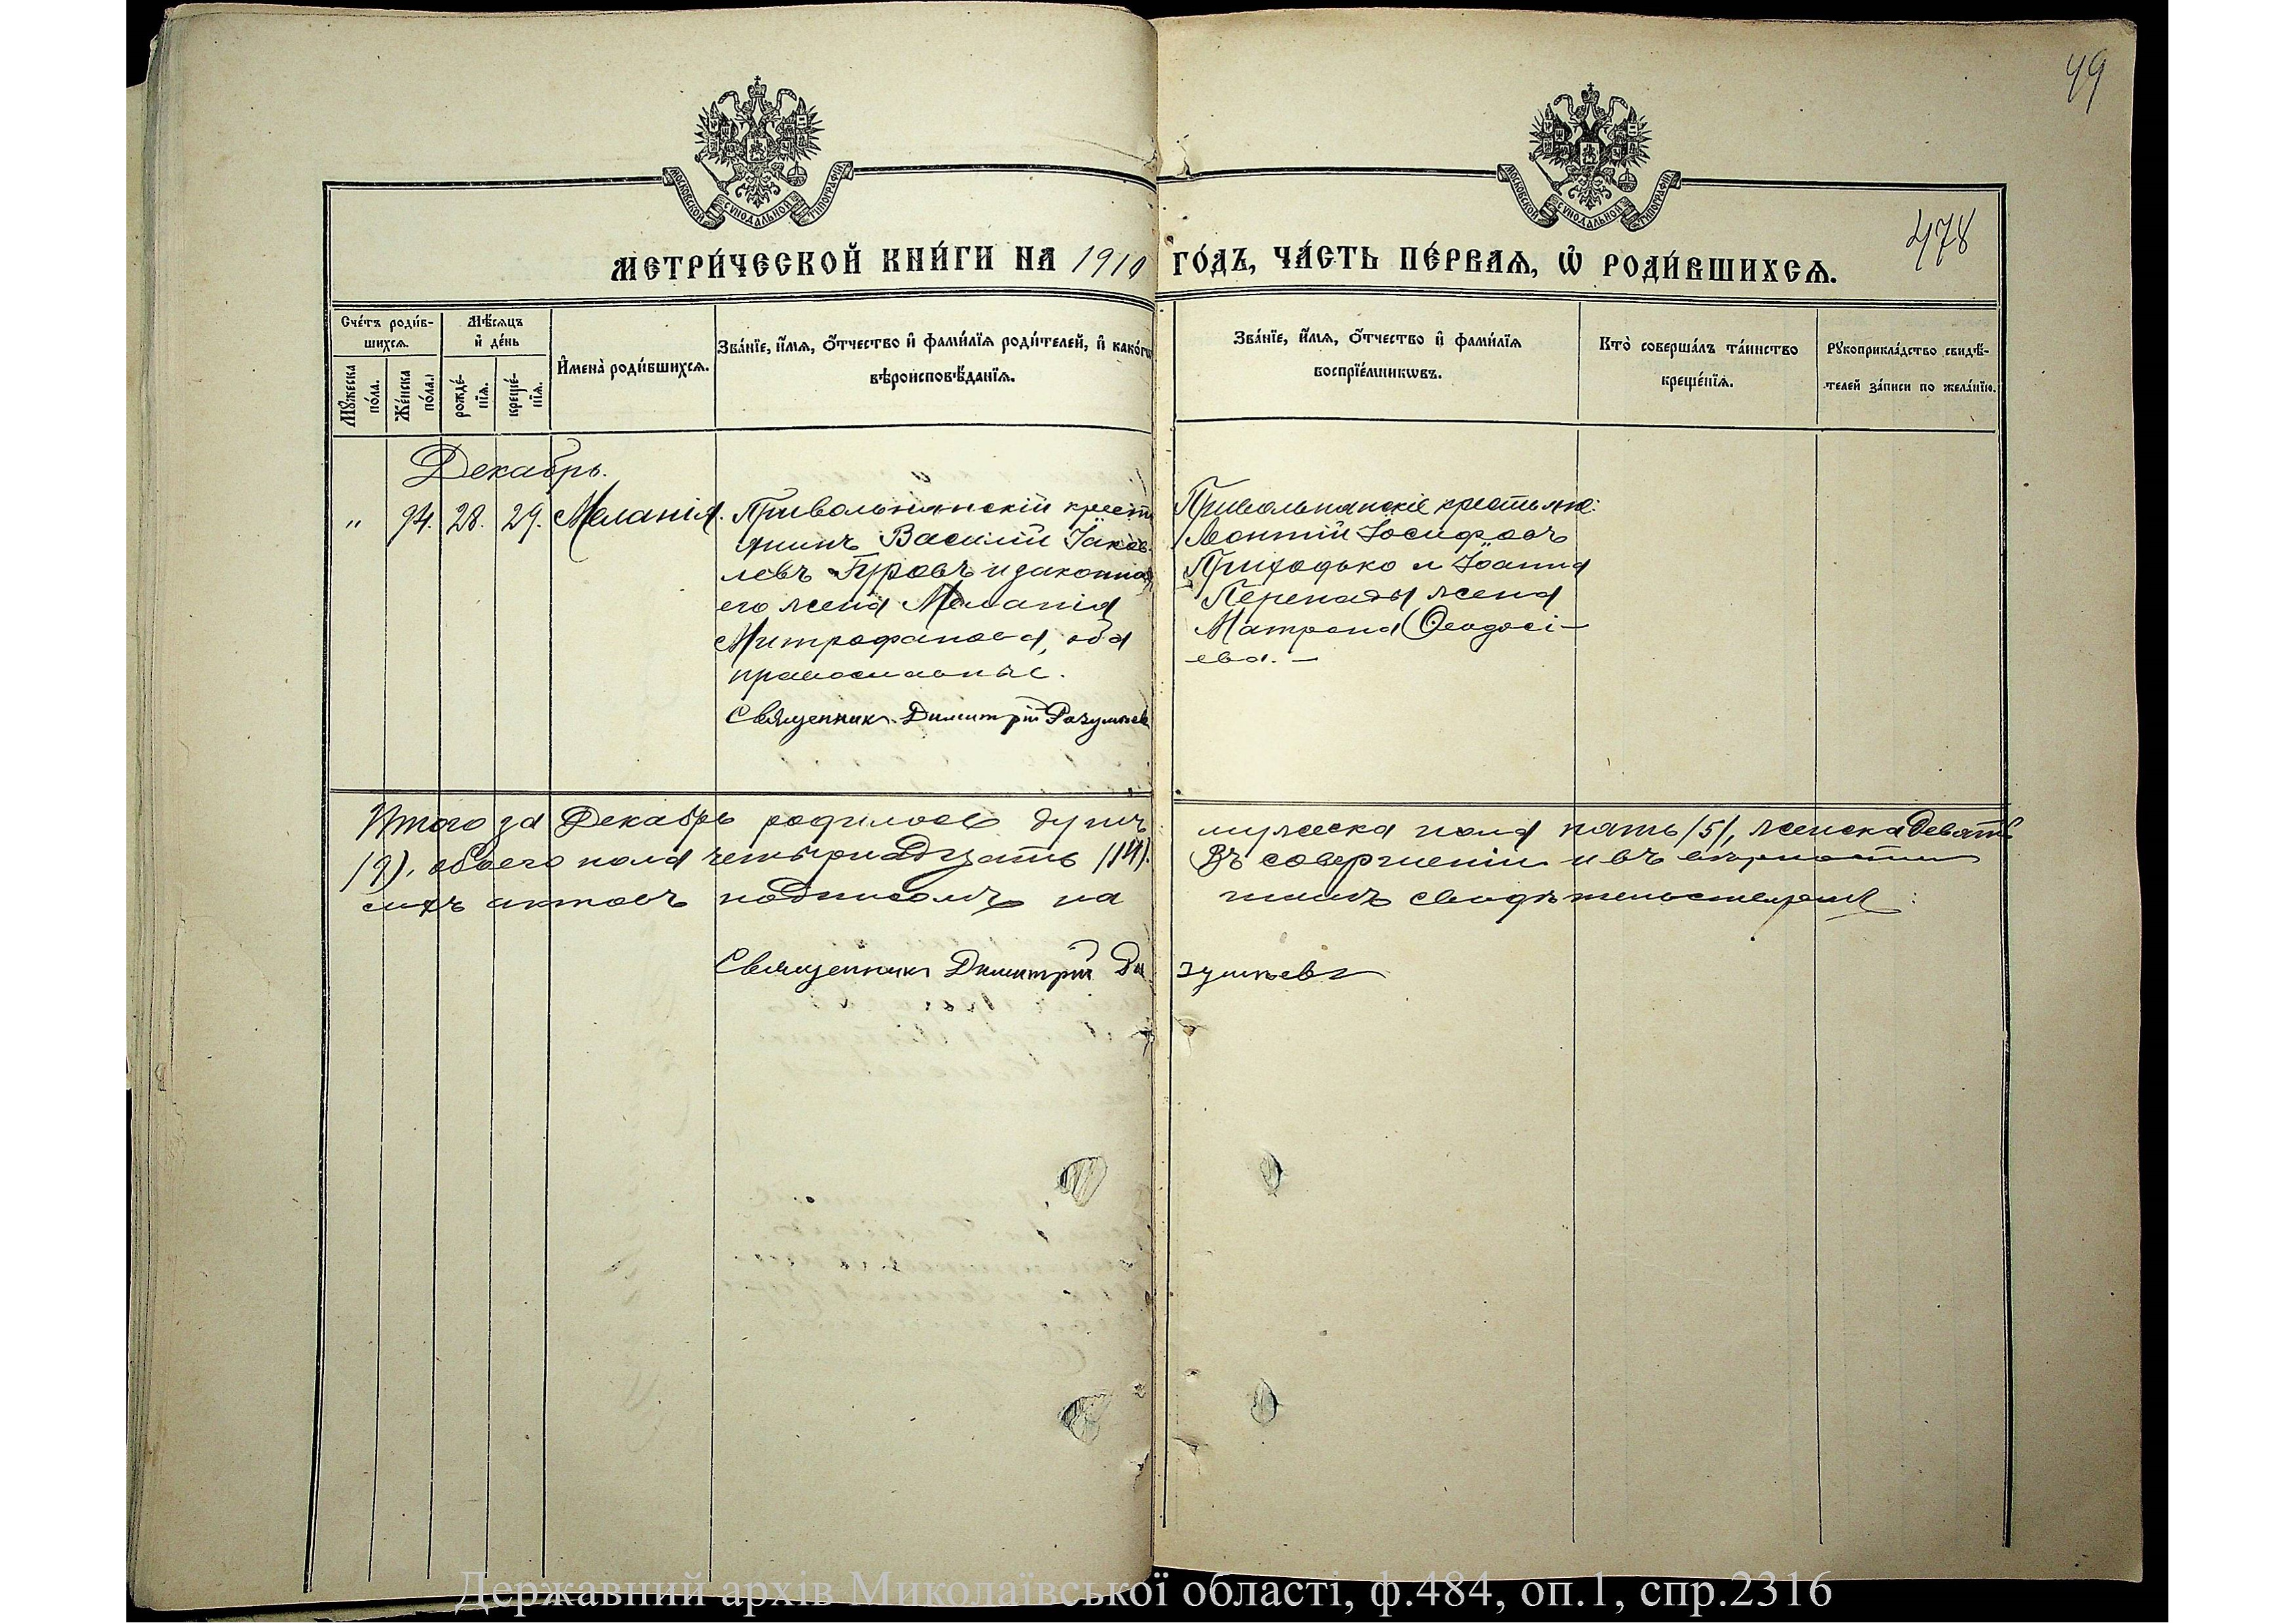 49
478
МОСКОВСКОЙ СѴНОДАЛЬНОЙ ТИПОГРАФІИ
МОСКОВСКОЙ СѴНОДАЛЬНОЙ ТИПОГРАФІИ
МЕТРИ́ЧЕСКОЙ КНИ́ГИ НА 1910 ГО́ДЪ, ЧА́СТЬ ПЕ́РВАѦ, Ѡ҆ РОДИ́ВШИХСѦ.
Сче́тъ роди́в-
шихсѧ.
Мꙋ́жеска по́ла.
Же́нска по́ла.
Мѣ́сѧцъ
и҆ де́нь
рожде́-
нїѧ.
креще́-
нїѧ.
И҆мена̀ роди́вшихсѧ.
Зва́нїе, и҆́мѧ, ѻ҆́тчество и҆ фами́лїѧ роди́телей, и҆ како́гѡ
вѣроисповѣ́данїѧ.
Зва́нїе, и҆́мѧ, ѻ҆́тчество и҆ фами́лїѧ
воспрїе́мникѡвъ.
Кто̀ соверша́лъ та́инство
креще́нїѧ.
Рꙋкоприкла́дство свидѣ́-
телей за́писи по жела́нїю.
Декабрь.
" 94. 28. 29. Меланія.
Привольнянскій крестья
янинъ Василій Іаков-
левъ Гуровъ и законная
его жена Меланія
Митрофанова, оба
православные.
Священникъ Димитрій Разумневъ
Привольнянскіе крестьяне:
Леонтій Іосифовъ
Приходько и Іоанна
жена
Матрона Ѳеодосі-
ева. —
Итого за Декабрь родилось душъ мужеска пола пять (5), женска девять
(9), обоего пола четырнадцать (14). Въ совершеніи и въ вѣрности
сихъ актовъ подписомъ нашимъ свидѣтельствуемъ:
Священникъ Димитрій Разумневъ
Державний архів Миколаївської області, ф.484, оп.1, спр.2316